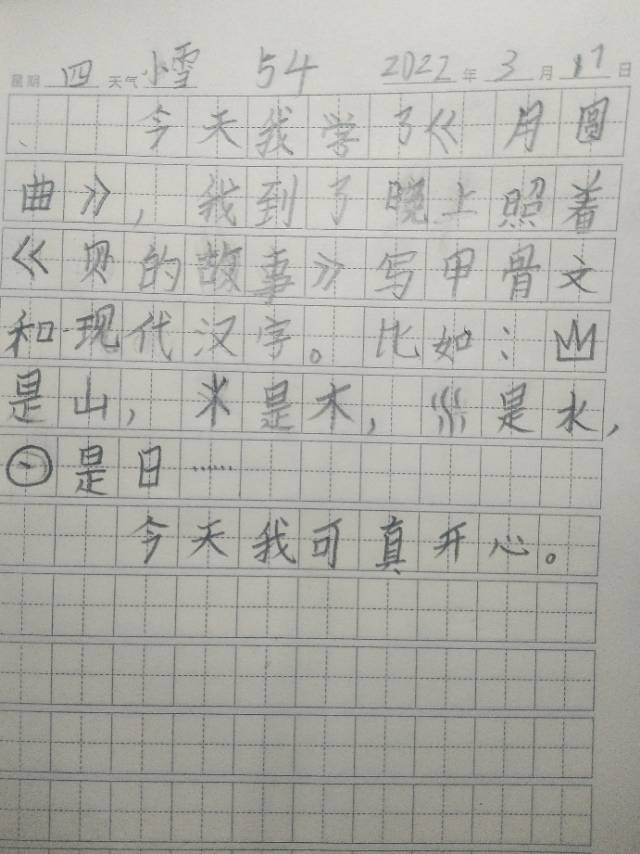 星期 四 天气 小雪 54 2022 年 3 月 17 日
、 今天我学了《月圆
曲》，我到了晚上照着
《贝的故事》写甲骨文
和现代汉字。比如：
是山，是木，是水，
是日……
今天我可真开心。